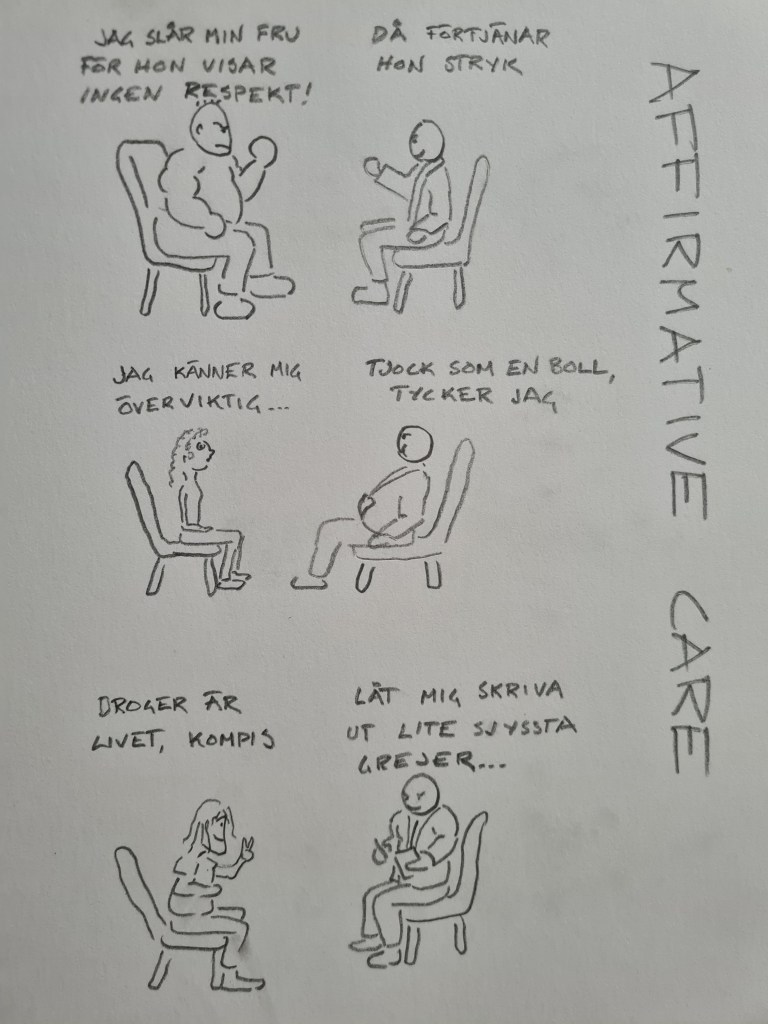 JAG SLÅR MIN FRU
FÖR HON VISAR
INGEN RESPEKT!
DÅ FÖRTJÄNAR
HON STRYK
JAG KÄNNER MIG
ÖVERVIKTIG...
TJOCK SOM EN BOLL,
TYCKER JAG
DROGER ÄR
LIVET, KOMPIS
LÅT MIG SKRIVA
UT LITE SJYSSTA
GREJER...
AFFIRMATIVE CARE